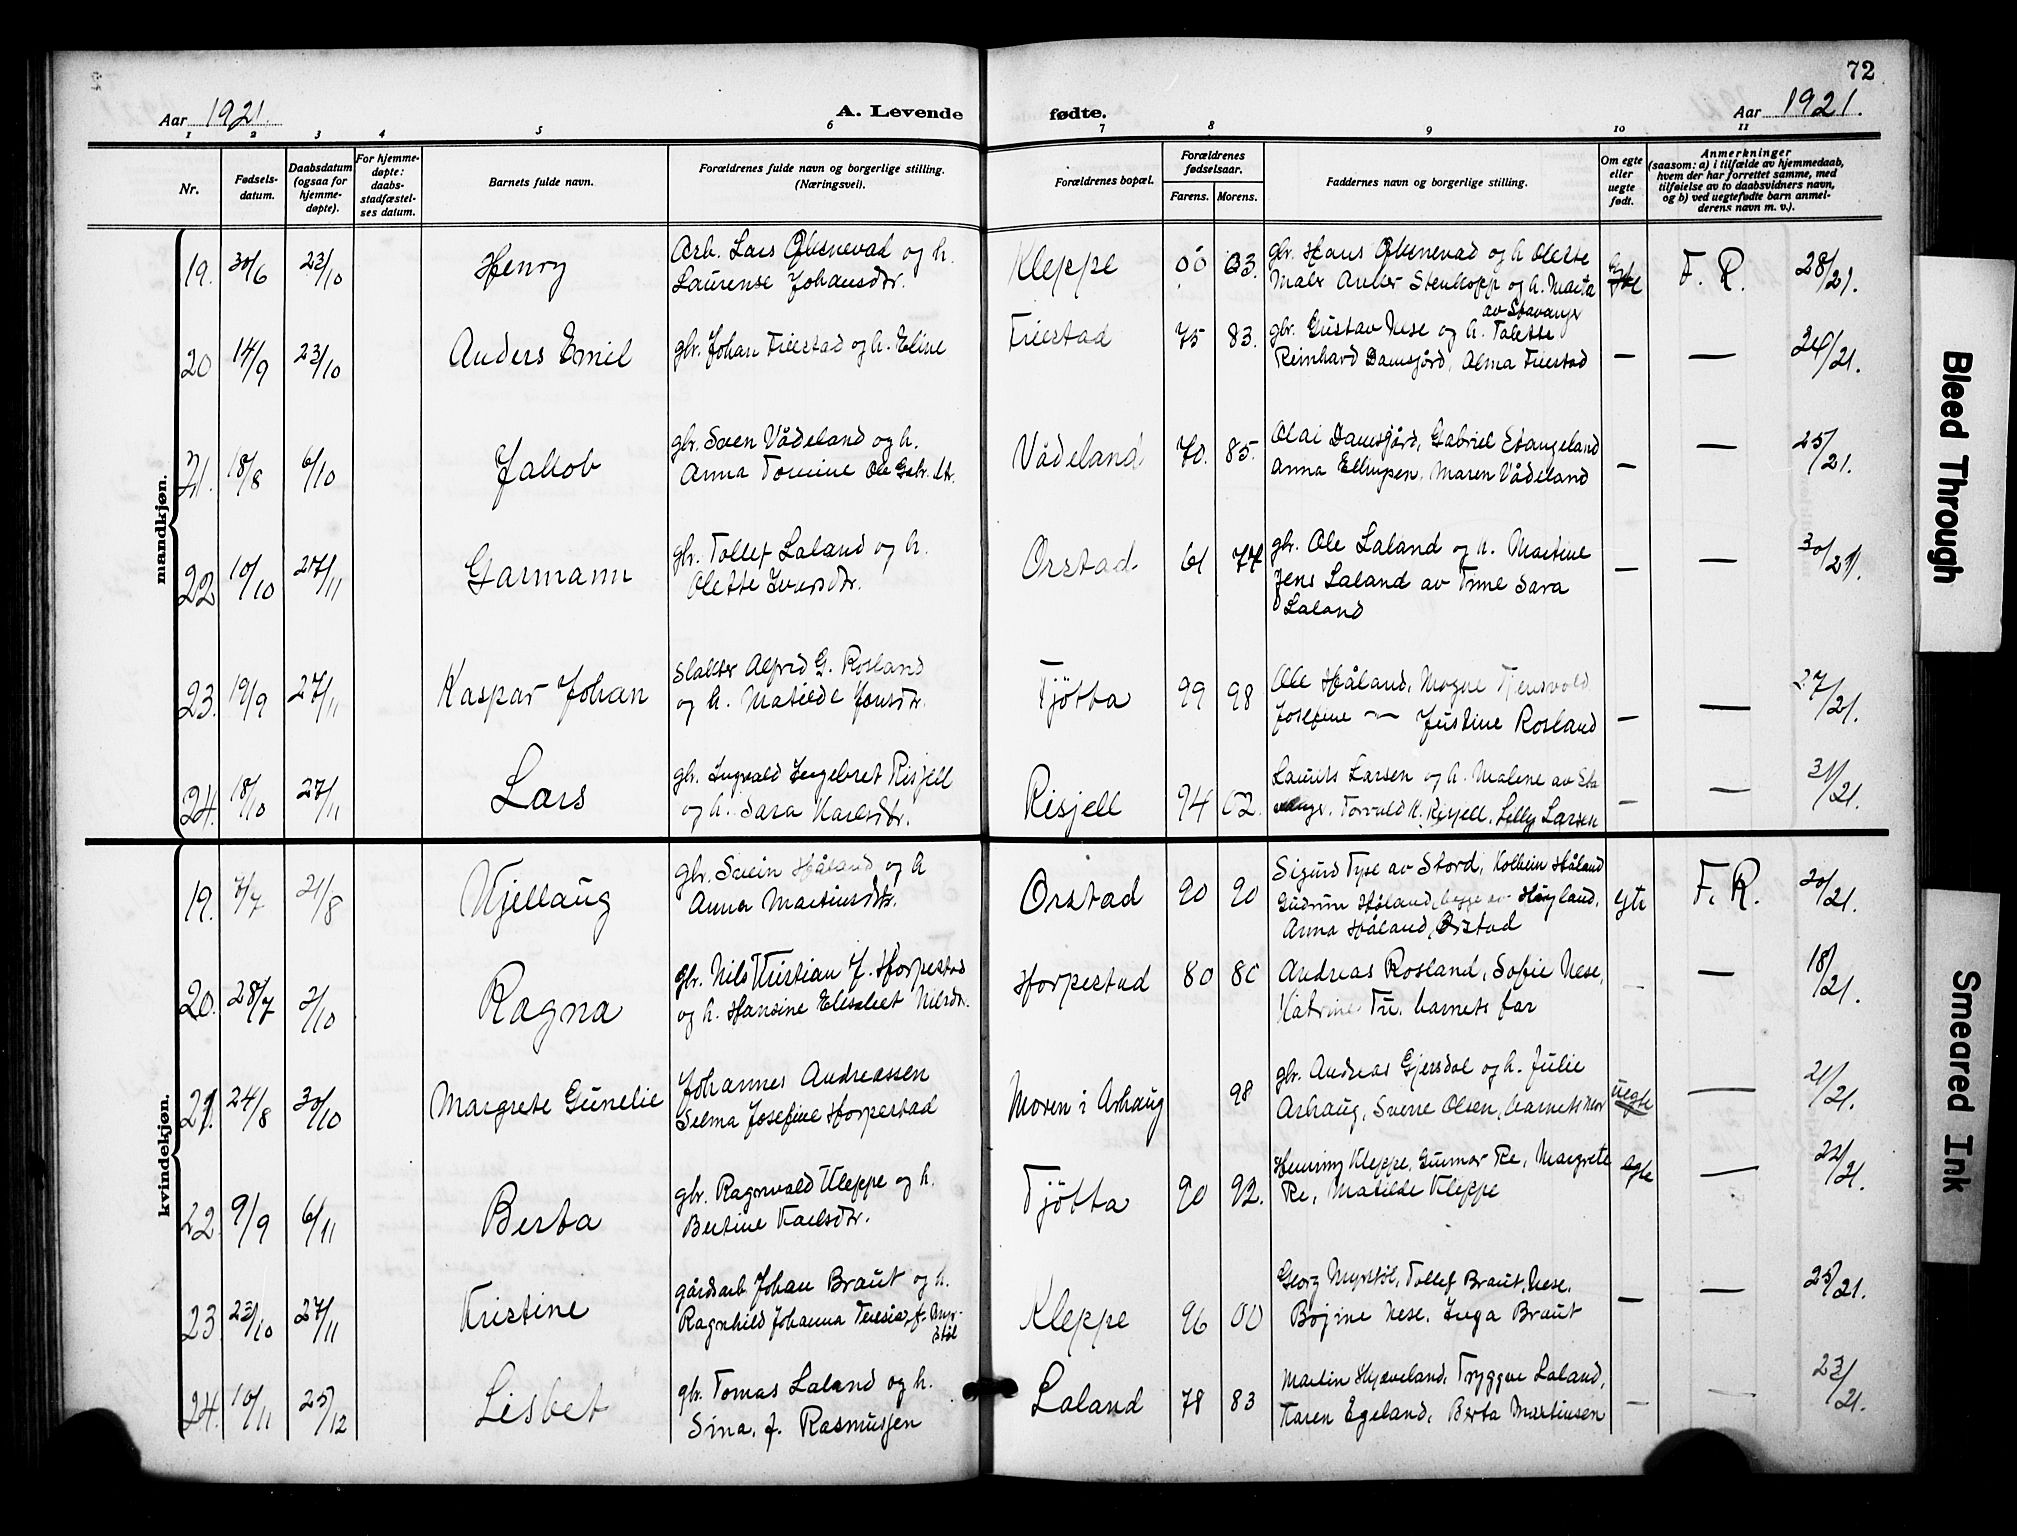 72
Aar 1921.
A. Levende
fødte.
Aar 1921.
1 2 3 4 5 6 7 8 9 10 11
Nr.
Fødsels-
datum.
Daabsdatum
(ogsaa for
hjemme-
døpte).
For hjemme-
døpte:
daabs-
stadfæstel-
ses datum.
Barnets fulde navn.
Forældrenes fulde navn og borgerlige stilling.
(Næringsvei).
Forældrenes bopæl.
Forældrenes
fødselsaar.
Farens. Morens.
Faddernes navn og borgerlige stilling.
Om egte
eller
uegte
født.
Anmerkninger
(saasom: a) i tilfælde av hjemmedaab,
hvem der har forrettet samme, med
tilføielse av to daabsvidners navn,
og b) ved uegtefødte barn anmel-
derens navn m. v.).
mandkjøn.
19. 30/6 23/10 Henry
Arb. Lars og h.
Laurense Johansdtr.
Kleppe 00
gbr. Hans og h. Olette
Maler og h. Marta
av Stavanger
F. R. 28/21.
20 14/9 23/10 Anders Emil
gbr. Johan Friestad og h. Eline
Friestad 75 83.
gbr. Gustav Nese og h. Talette
Reinhard Damsgård, Alma Friestad
— — 24/21.
21. 18/8 6/10 Jakob
gbr. Sven Vådeland og h.
Anna Tomine Ole Gabr. dtr.
Vådeland 70. 85.
Olai Damsgård, Gabriel Stangeland
Anna Ellingsen, Maren Vådeland
— — 25/21.
22 10/10 27/11 Garmann
gbr. Tollef Laland og h.
Olette Iversdtr.
Orstad 61 77
gbr. Ole Laland og h. Martine
Jens Laland av Time Sara
Laland
— — 30/21.
23. 19/9 27/11 Kaspar Johan
Slakter Alfred G. Rosland
og h. Matilde Jonsdtr.
Tjötta 99 98
Ole Håland, Mogne Tjensvold
Josefine — Justine Rosland
— — 27/21.
24. 18/10 27/11 Lars
gbr. Ingvald Ingebret Risjell
og h. Sara Karlsdtr.
Risjell 94 02.
Laurits Larsen og h. Malene av Sta
vanger. Torvald K. Risjell. Lilly Larsen
— — 31/21.
kvindekjøn.
19. 7/7 21/8 Kjellaug
gbr. Svein Håland og h
Anna Martinsdtr.
Orstad 90 90
Sigurd Tyse av Stord, Kolbein Håland
Gudrun Håland, begge av Høyland,
Anna Håland, Orstad
egte F. R. 20/21.
20. 28/7 2/10 Ragna
gbr. Nils Kristian J. Horpestad
og h. Hansine Elisabet Nilsdtr.
Horpestad 80 80
Andreas Rosland, Sofie Nese,
Katrine Tu. barnets far
— — 18/21.
21. 24/8 30/10 Margrete Gunelie
Johannes Andreassen
Selma Josefine Horpestad
Moren i Arhaug 98
gbr. Andreas Gjersdal og h. Julie
Arhaug, Sverre Olsen, barnets mor
uegte — 21/21.
22 9/9 6/11 Berta
gbr. Ragnvald Kleppe og h.
Bertine Karlsdtr.
Tjötta 90 92.
Henning Kleppe, Gunnar Re, Margrete
Re, Matilde Kleppe
egte — 22/21.
23 23/10 27/11 Kristine
gårdsarb. Johan Braut og h.
Ragnhild Johanna Teresia, f. Myr-
stöl
Kleppe 96 00
Georg Myrstöl, Tollef Braut, Nese,
Bojine Nese, Inga Braut
— — 25/21.
24. 10/11 25/12 Lisbet
gbr. Tomas Laland og h.
Sina, f. Rasmussen
Laland 78 83
Martin Hjæveland, Tryggve Laland,
Karen Egeland, Berta Martinsen
— — 23/21.
Bleed Through
Smeared Ink